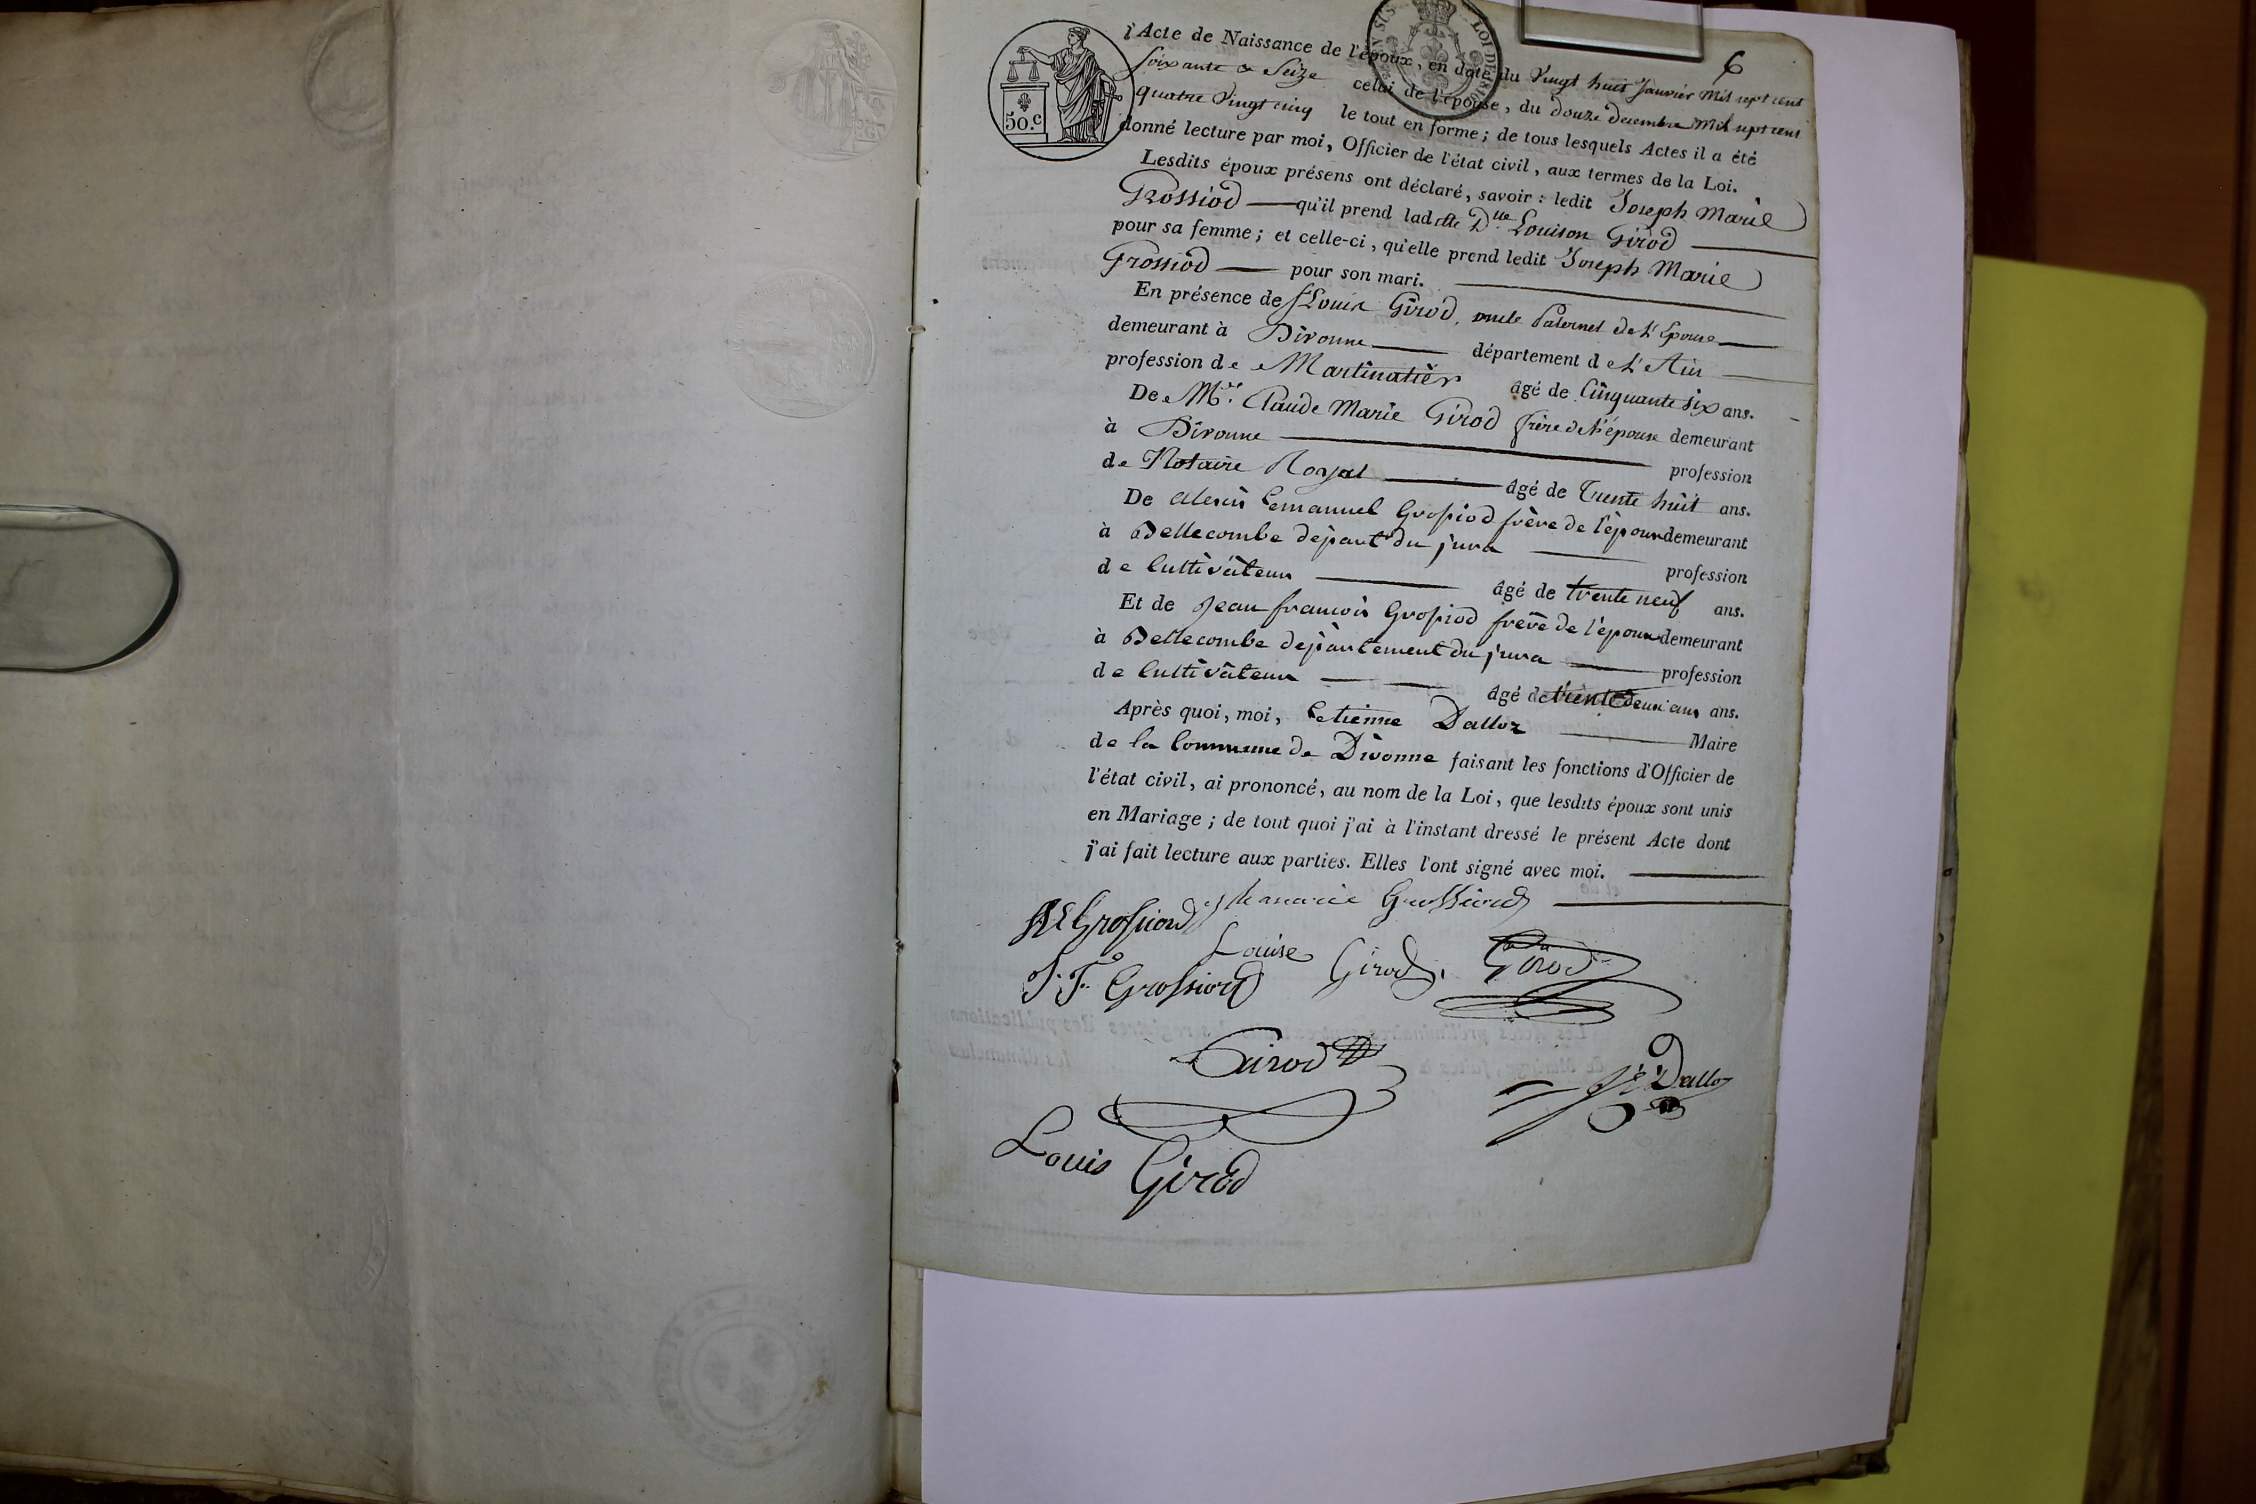 6
50.c
Acte de Naissance de l'époux, en date du Vingt huit Janvier Mil sept cent
soixante & Seize celui de l'épouse, du douze decembre Mil sept cent
quatre Vingt cinq le tout en forme; de tous lesquels Actes il a été
donné lecture par moi, Officier de l'état civil, aux termes de la Loi.
Lesdits époux présens ont déclaré, savoir: ledit Joseph Marie
Grossiod qu'il prend ladite Dlle Louison Girod
pour sa femme; et celle-ci, qu'elle prend ledit Joseph Marie
Grossiod pour son mari.
En présence de Sr Louis Girod, oncle Paternel de L'Epouse
demeurant à Divonne département de L'Ain
profession de Martinatier âgé de Cinquante six ans.
De Mr. Claude Marie Girod frère de L'épouse demeurant
à Divonne profession
de Notaire Royal âgé de Trente huit ans.
De alexis Emanuel Grossiod frère de l'époux demeurant
à Bellecombe départt du jura profession
de Cultivateur âgé de trente neuf ans.
Et de Jean francois Grossiod frere de l'époux demeurant
à Bellecombe département du jura profession
de Cultivateur âgé de trente deux ans ans.
Après quoi, moi, Etienne Dalloz Maire
de la Commune de Divonne faisant les fonctions d'Officier de
l'état civil, ai prononcé, au nom de la Loi, que lesdits époux sont unis
en Mariage; de tout quoi j'ai à l'instant dressé le présent Acte dont
j'ai fait lecture aux parties. Elles l'ont signé avec moi.
AE Grossiord marie Grossiord
Louise Girod. Girod
J. F. Grossiord
Girod
Dalloz
Louis Girod